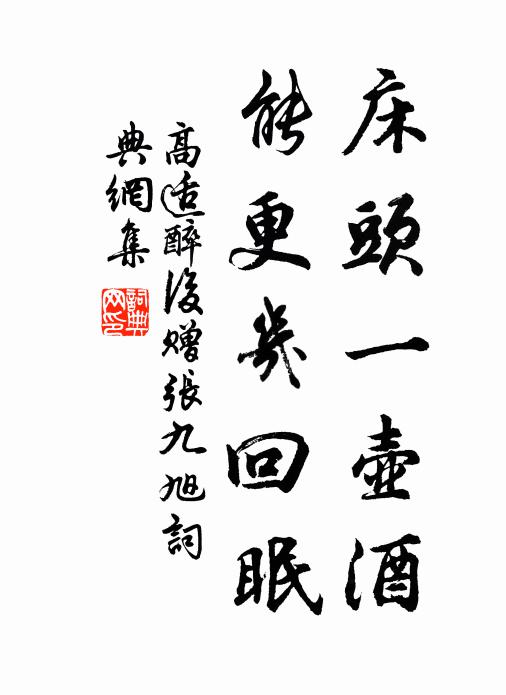 床頭一壺酒
能更幾回眠
高适醉後贈張九旭詞
典網集
詞典
網印